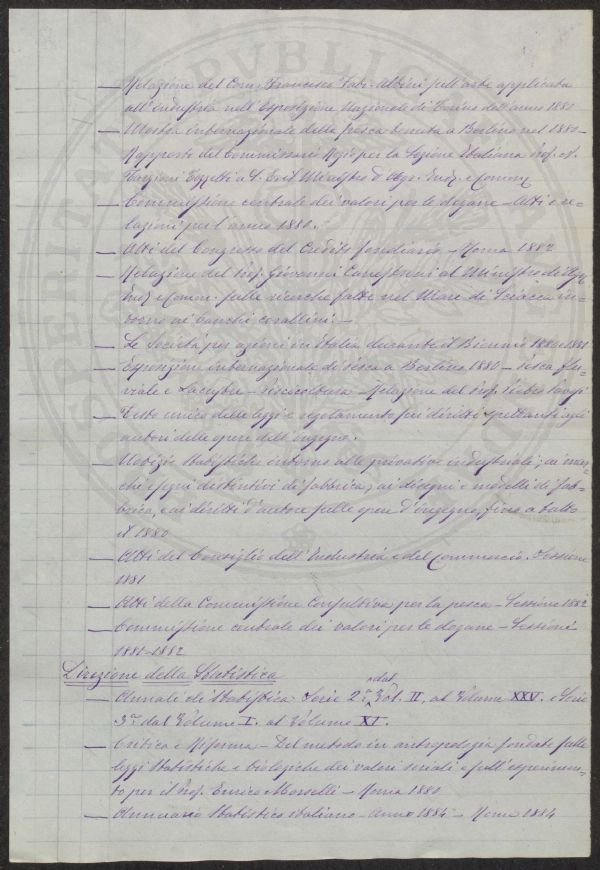 — Relazione del Com. Francesco Fabi-Altini sull'arte applicata
all'industria nell'Esposizione Nazionale di Torino dell'anno 188
— Mostra internazionale della pesca tenuta a Berlino nel 1880 —
Rapporto del Commissario Regio per la Sezione Italiana Prof. A.
Targioni Tozzetti a S. Ecc. il Ministro d'Agr. Ind. e Comm.
— Commissione centrale dei valori per le dogane — Atti e re-
lazioni per l'anno 1880.
— Atti del Congresso del Credito fondiario — Roma 1882
— Relazione del Prof. Giovanni Canestrini al Ministro di Agr.
Ind. e Comm. sulle ricerche fatte nel Mare di Sciacca in-
torno ai banchi corallini. —
— Le Società per azioni in Italia durante il Biennio 1880-1881
— Esposizione internazionale di Pesca a Berlino 1880 — Pesca flu-
viale e Lacustre — Piscicoltura — Relazione del Prof. Pietro Pavesi
— Testo unico delle leggi e regolamento sui diritti spettanti agli
autori delle opere dell'ingegno.
— Notizie statistiche intorno alle privative industriali, ai mar-
chi e segni distintivi di fabbrica, ai disegni e modelli di fab-
brica, e ai diritti d'autore sulle opere d'ingegno, fino a tutto
il 1880
— Atti del Consiglio dell'Industria e del Commercio. Sessione
1881
— Atti della Commissione Consultiva per la pesca — Sessione 1882
— Commissione centrale dei valori per le dogane — Sessioni
1881-1882
Direzione della Statistica
— Annali di Statistica Serie 2ª dal Vol. II, al Volume XXV. e Serie
3ª dal Volume I. al Volume XI.
— Critica e Riforma — Del metodo in antropologia fondate sulle
leggi statistiche e biologiche dei valori seriali e sull'esperimen-
to per il Prof. Enrico Morselli — Roma 1880
— Annuario Statistico Italiano — Anno 1884 — Roma 1884